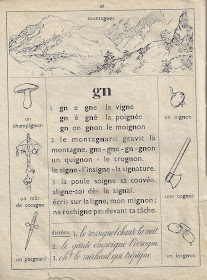 montagnes
gn
1. gn e gne la vigne
gn é gné la poignée
gn on gnon le moignon
2. le montagnard gravit la
montagne, gna - gne - gn - gnon
un quignon - le trognon.
le signe - l'insigne - la signature.
3. la poule soigne sa couvée.
aligne-toi dès le signal.
écris sur la ligne, mon mignon;
ne rechigne pas devant ta tâche.
dictées. 1. le rossignol chante la nuit.
2. le garde empoigne l'ivrogne.
3. oh! le méchant qui égratigne
un
champignon
un mât
de cocagne
un poignard
un oignon
une cognée
un lorgnon